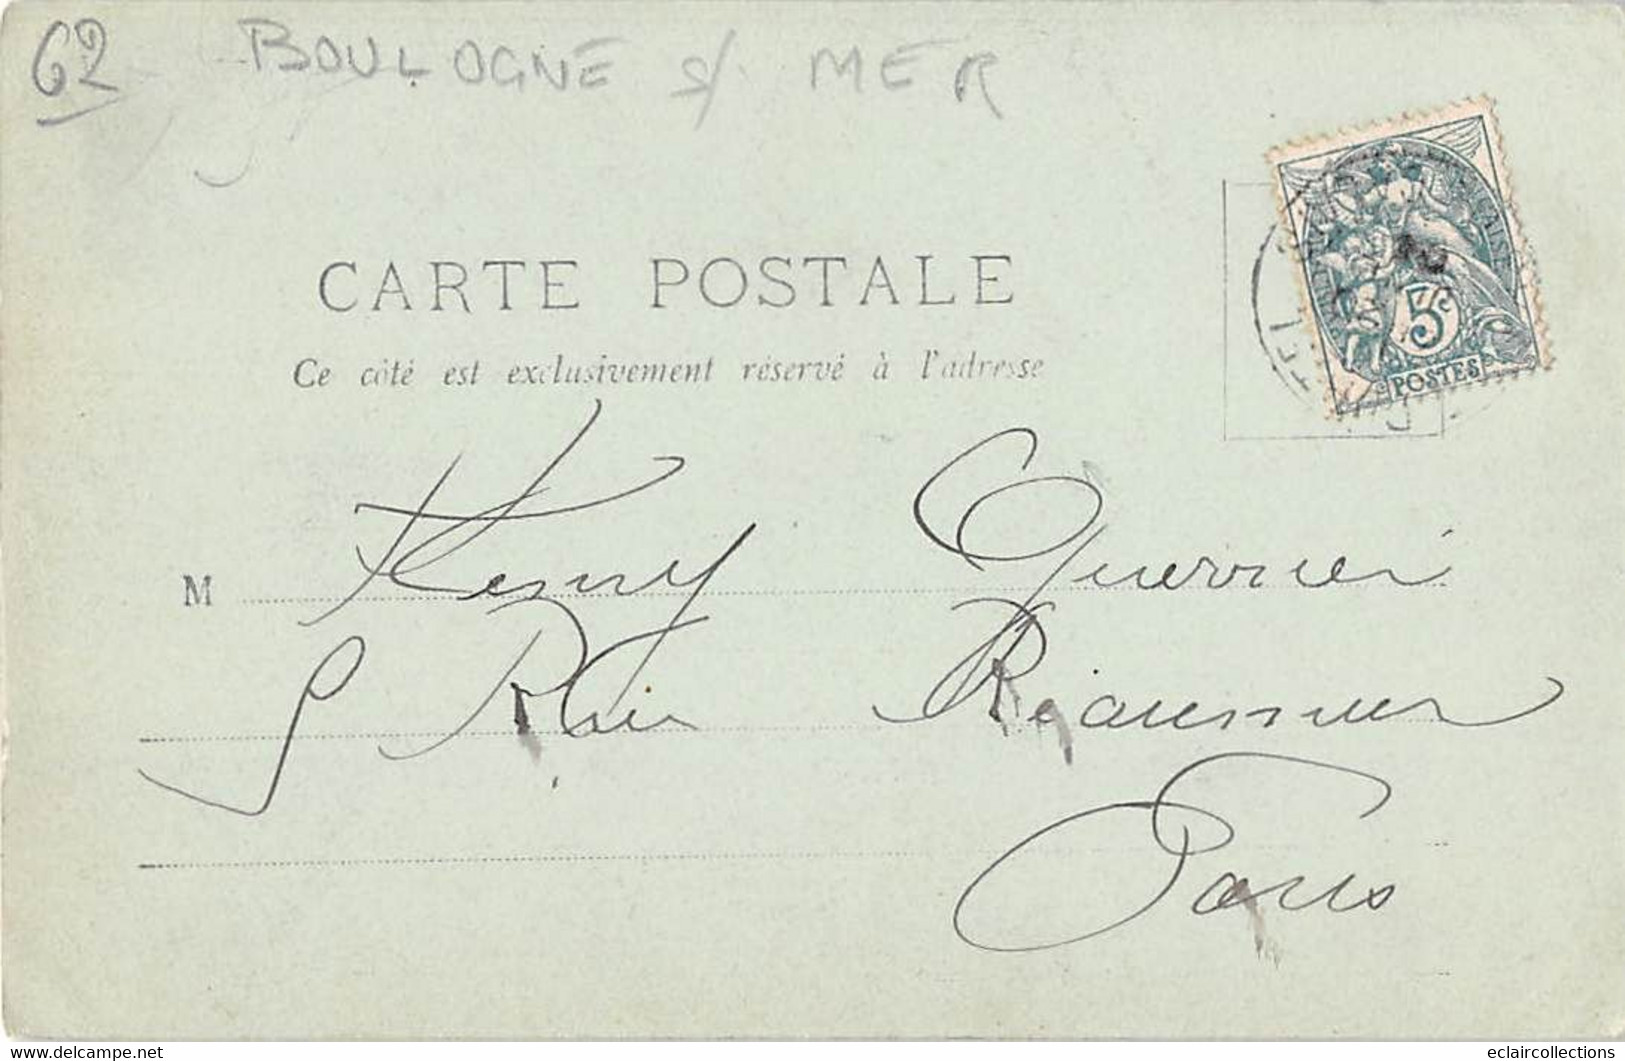 62 BOULOGNE s/ MER
CARTE POSTALE
Ce côté est exclusivement réservé à l'adresse
5c
POSTES
M Henry Guerrier
9 Rue Réaumur
Paris
www.delcampe.net
eclaircollections